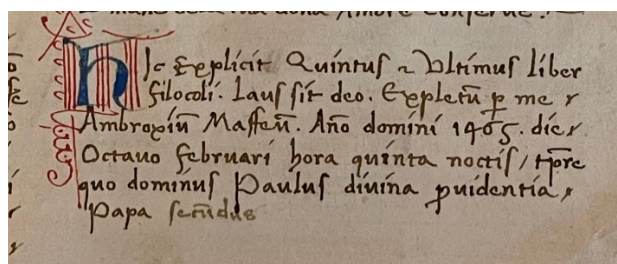 hic Explicit Quintus ⁊ Vltimus liber
filocoli. Laus sit deo. Expletũ ꝑ me
Ambroxiũ Maffeũ. Año domini 1465. die
Octauo februari hora quinta noctis / tp̃re
quo dominus Paulus diuina ꝓuidentia
Papa secũdus